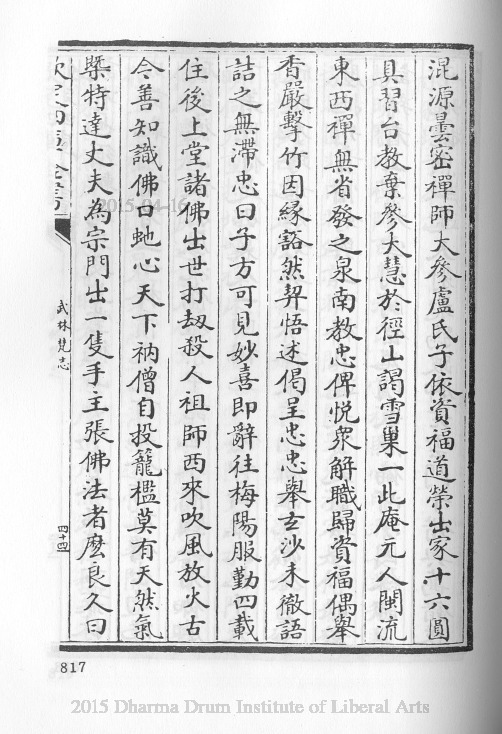 混源曇密禪師大參盧氏子依資福道榮出家十六圓
具習台教棄參大慧於徑山謁雪巢一此庵元人閩流
東西禪無省發之泉南教忠俾悦衆解職歸資福偶舉
香嚴擊竹因緣豁然契悟述偈呈忠忠舉玄沙未徹語
詰之無滯忠曰子方可見妙喜即辭往梅陽服勤四載
住後上堂諸佛出世打刼殺人祖師西來吹風放火古
今善知識佛口虵心天下衲僧自投籠檻莫有天然氣
槩特達丈夫為宗門出一隻手主張佛法者麽良久曰
武林梵志
四十四
817
2015-04-16
2015 Dharma Drum Institute of Liberal Arts